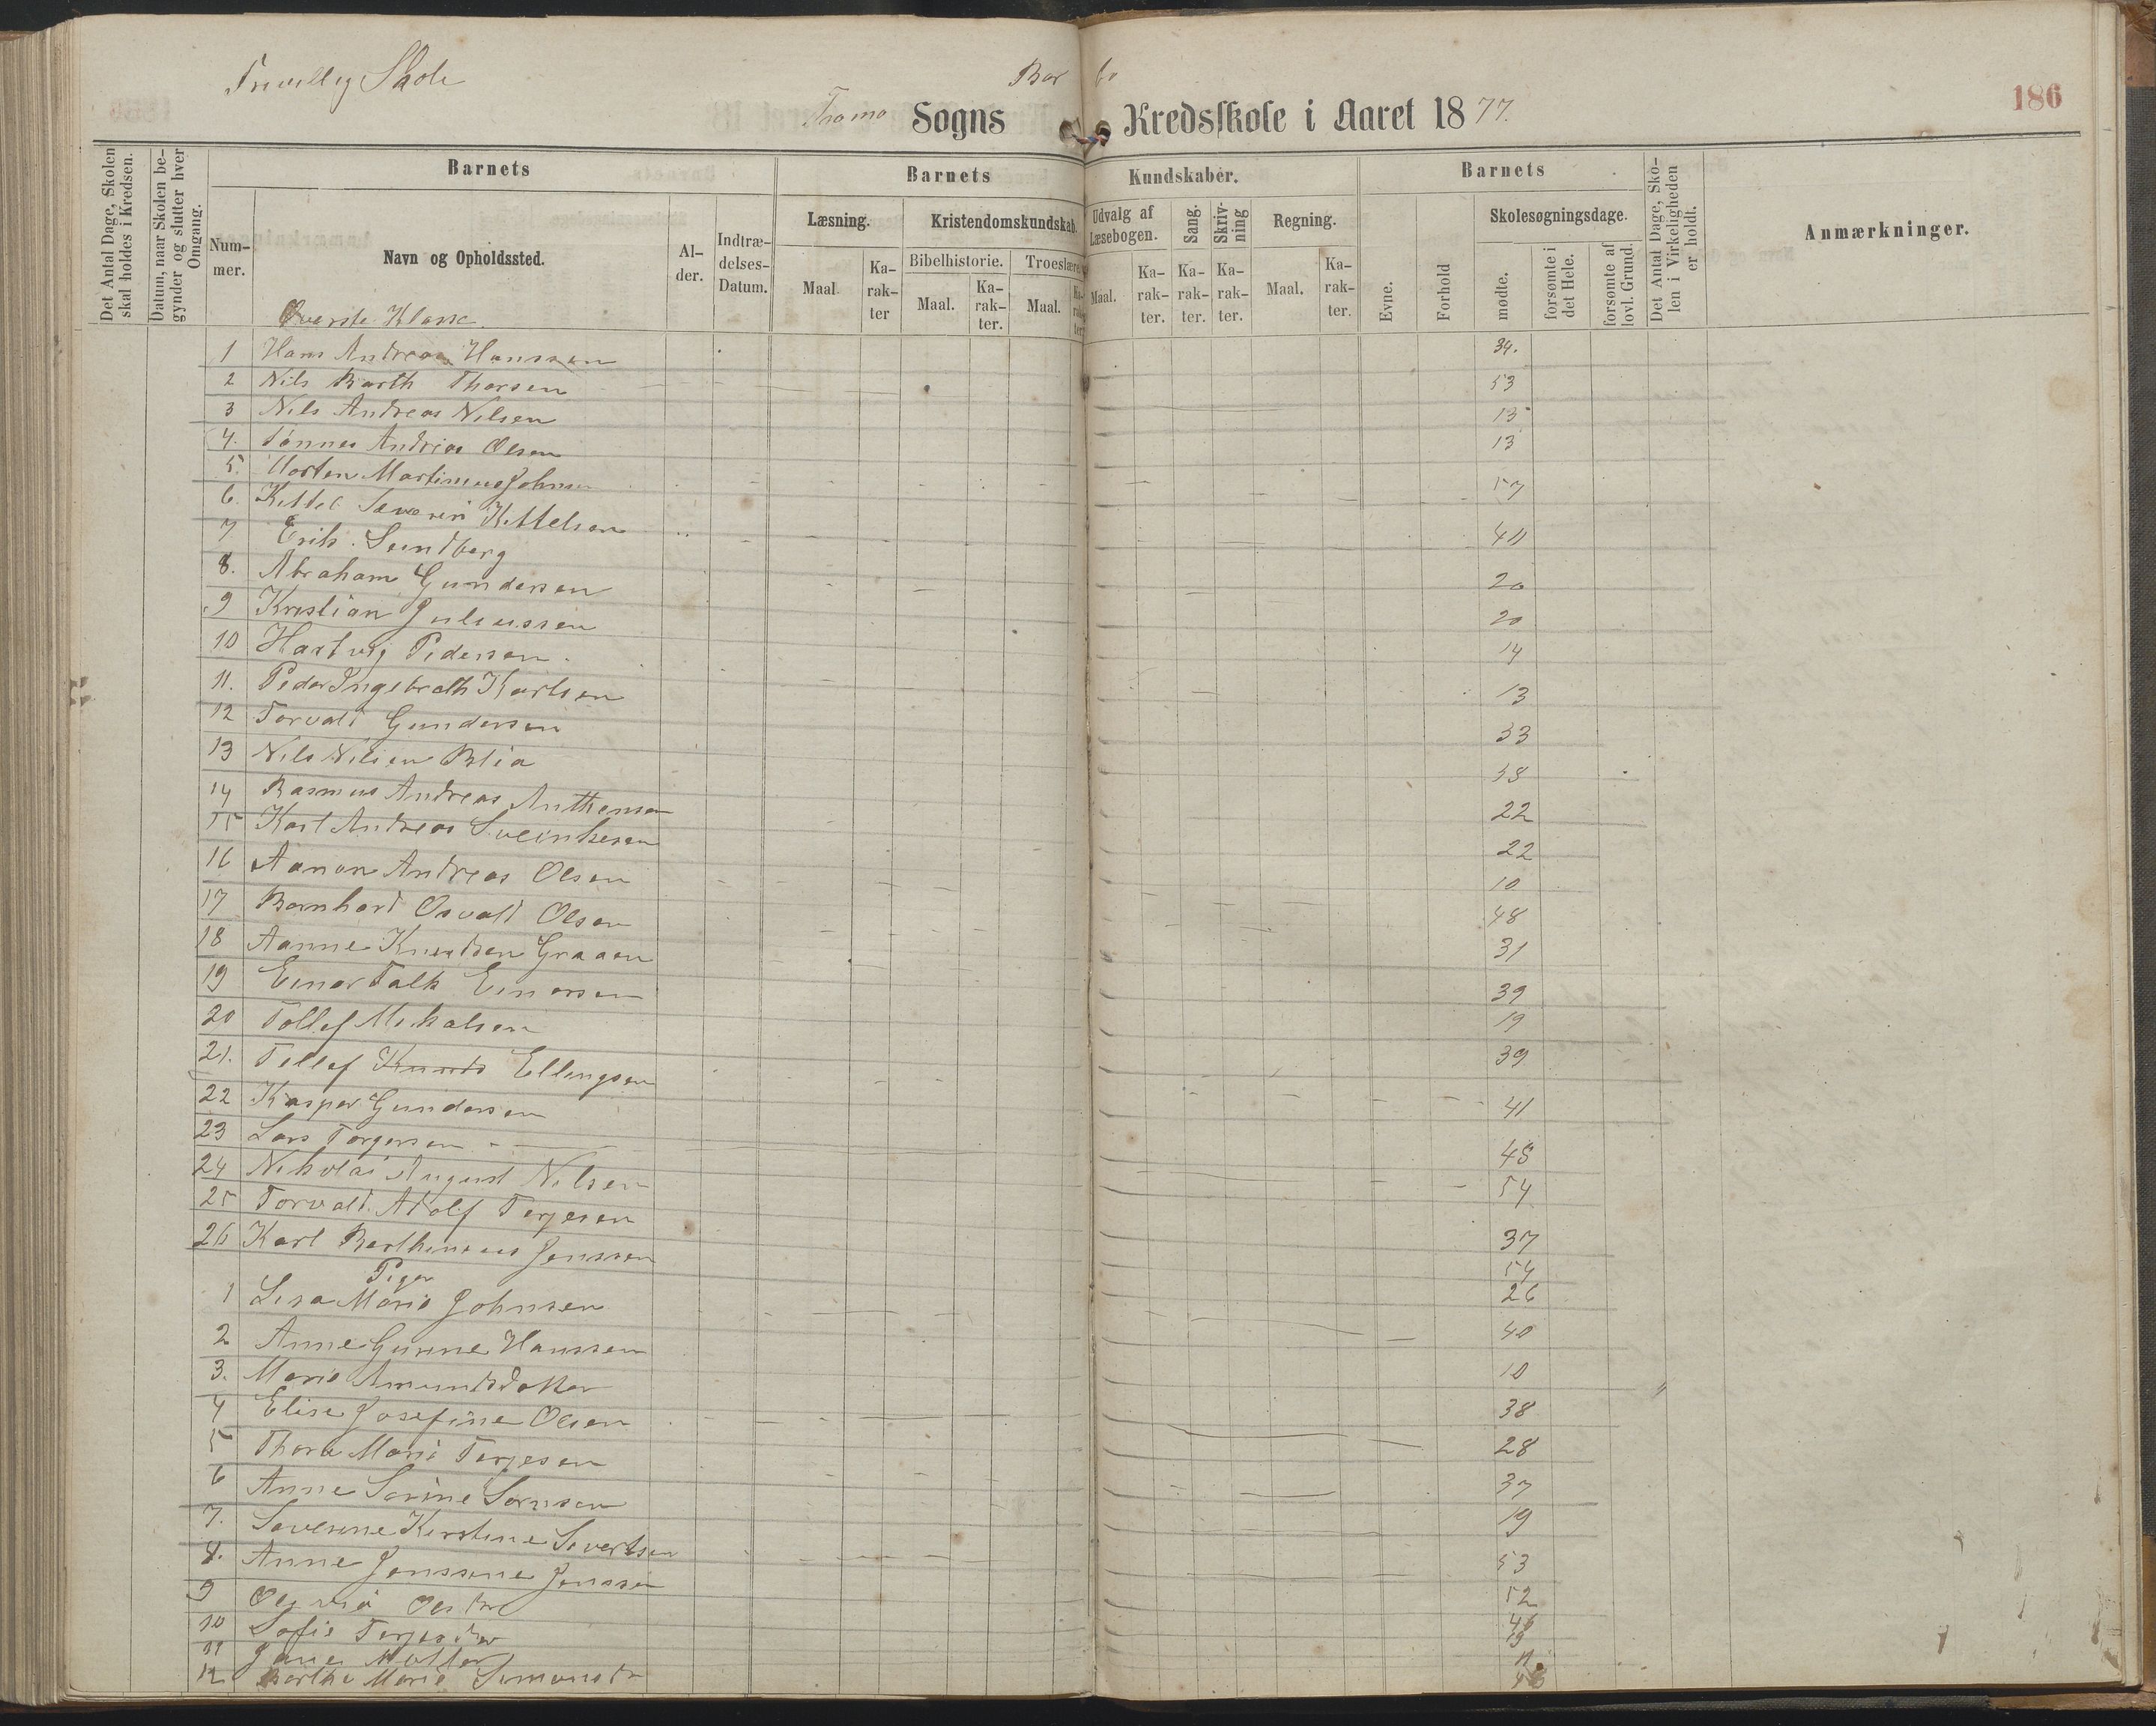 Frivillig Skole
Barbo
186
Tromø Sogns Kredsskole i Aaret 1877.
Det Antal Dage, Skolen skal holdes i Kredsen.
Datum, naar Skolen begynder og slutter hver Omgang.
Barnets
Nummer.
Navn og Opholdssted.
Alder.
Indtrædelses-Datum.
Barnets Kundskaber.
Læsning.
Maal
Karakter
Kristendomskundskab.
Bibelhistorie.
Maal.
Karakter.
Troeslære.
Maal.
Karakter.
Udvalg af Læsebogen.
Maal.
Karakter.
Sang.
Karakter.
Skrivning
Karakter.
Regning.
Maal.
Karakter.
Barnets
Evne.
Forhold
Skolesøgningsdage.
mødte.
forsømte i det Hele.
forsømte af lovl. Grund.
Det Antal Dage, Skolen i Virkeligheden er holdt.
Anmærkninger.
Øverste Klasse.
1 Hans Andreas Hanssen 34.
2 Nils Barth Thorsen 53
3 Nils Andreas Nilsen 13
4. Tønnes Andreas Olsen 13
5. Morten Martinius Johnsen 57
6. Kittel Severin Kittelsen 40
7 Erik Sundberg
8. Abraham Gundersen 20
9 Kristian Juliussen 20
10 Hartvig Pedersen 14
11. Peder Ingebreth Karlsen 13
12 Torvald Gundersen 33
13 Nils Nilsen Blia 38
14 Rasmus Andreas Anthensen 22
15 Karl Andreas Sveinksen 22
16 Aanon Andreas Olsen 10
17 Bernhard Osvald Olsen 48
18 Aanne Knudsen Graaen 31
19 Einar Falk Einarsen 39
20 Tollef Mikalsen 19
21. Tellef Knuds Ellingsen 39
22 Kasper Gundersen 41
23 Lars Torgersen 48
24 Nikolai August Nilsen 54
25 Torvald Adolf Terjesen 37
26 Karl Barthineus Jenssen 54
Piger
1 Lisa Marie Johnsen 26
2 Anne Gurine Hanssen 40
3. Marie Amundsdatter 10
4 Elise Josefine Olsen 38
5 Thora Marie Terjesen 28
6 Anne Sørine Sørnsen 37
7. Severine Kirstine Sivertsen 19
8. Anne Jenssine Jenssen 53
9 52
10 Sofie Terjesdtr
11 Møller 11
12 Berthe Marie Simonsdtr